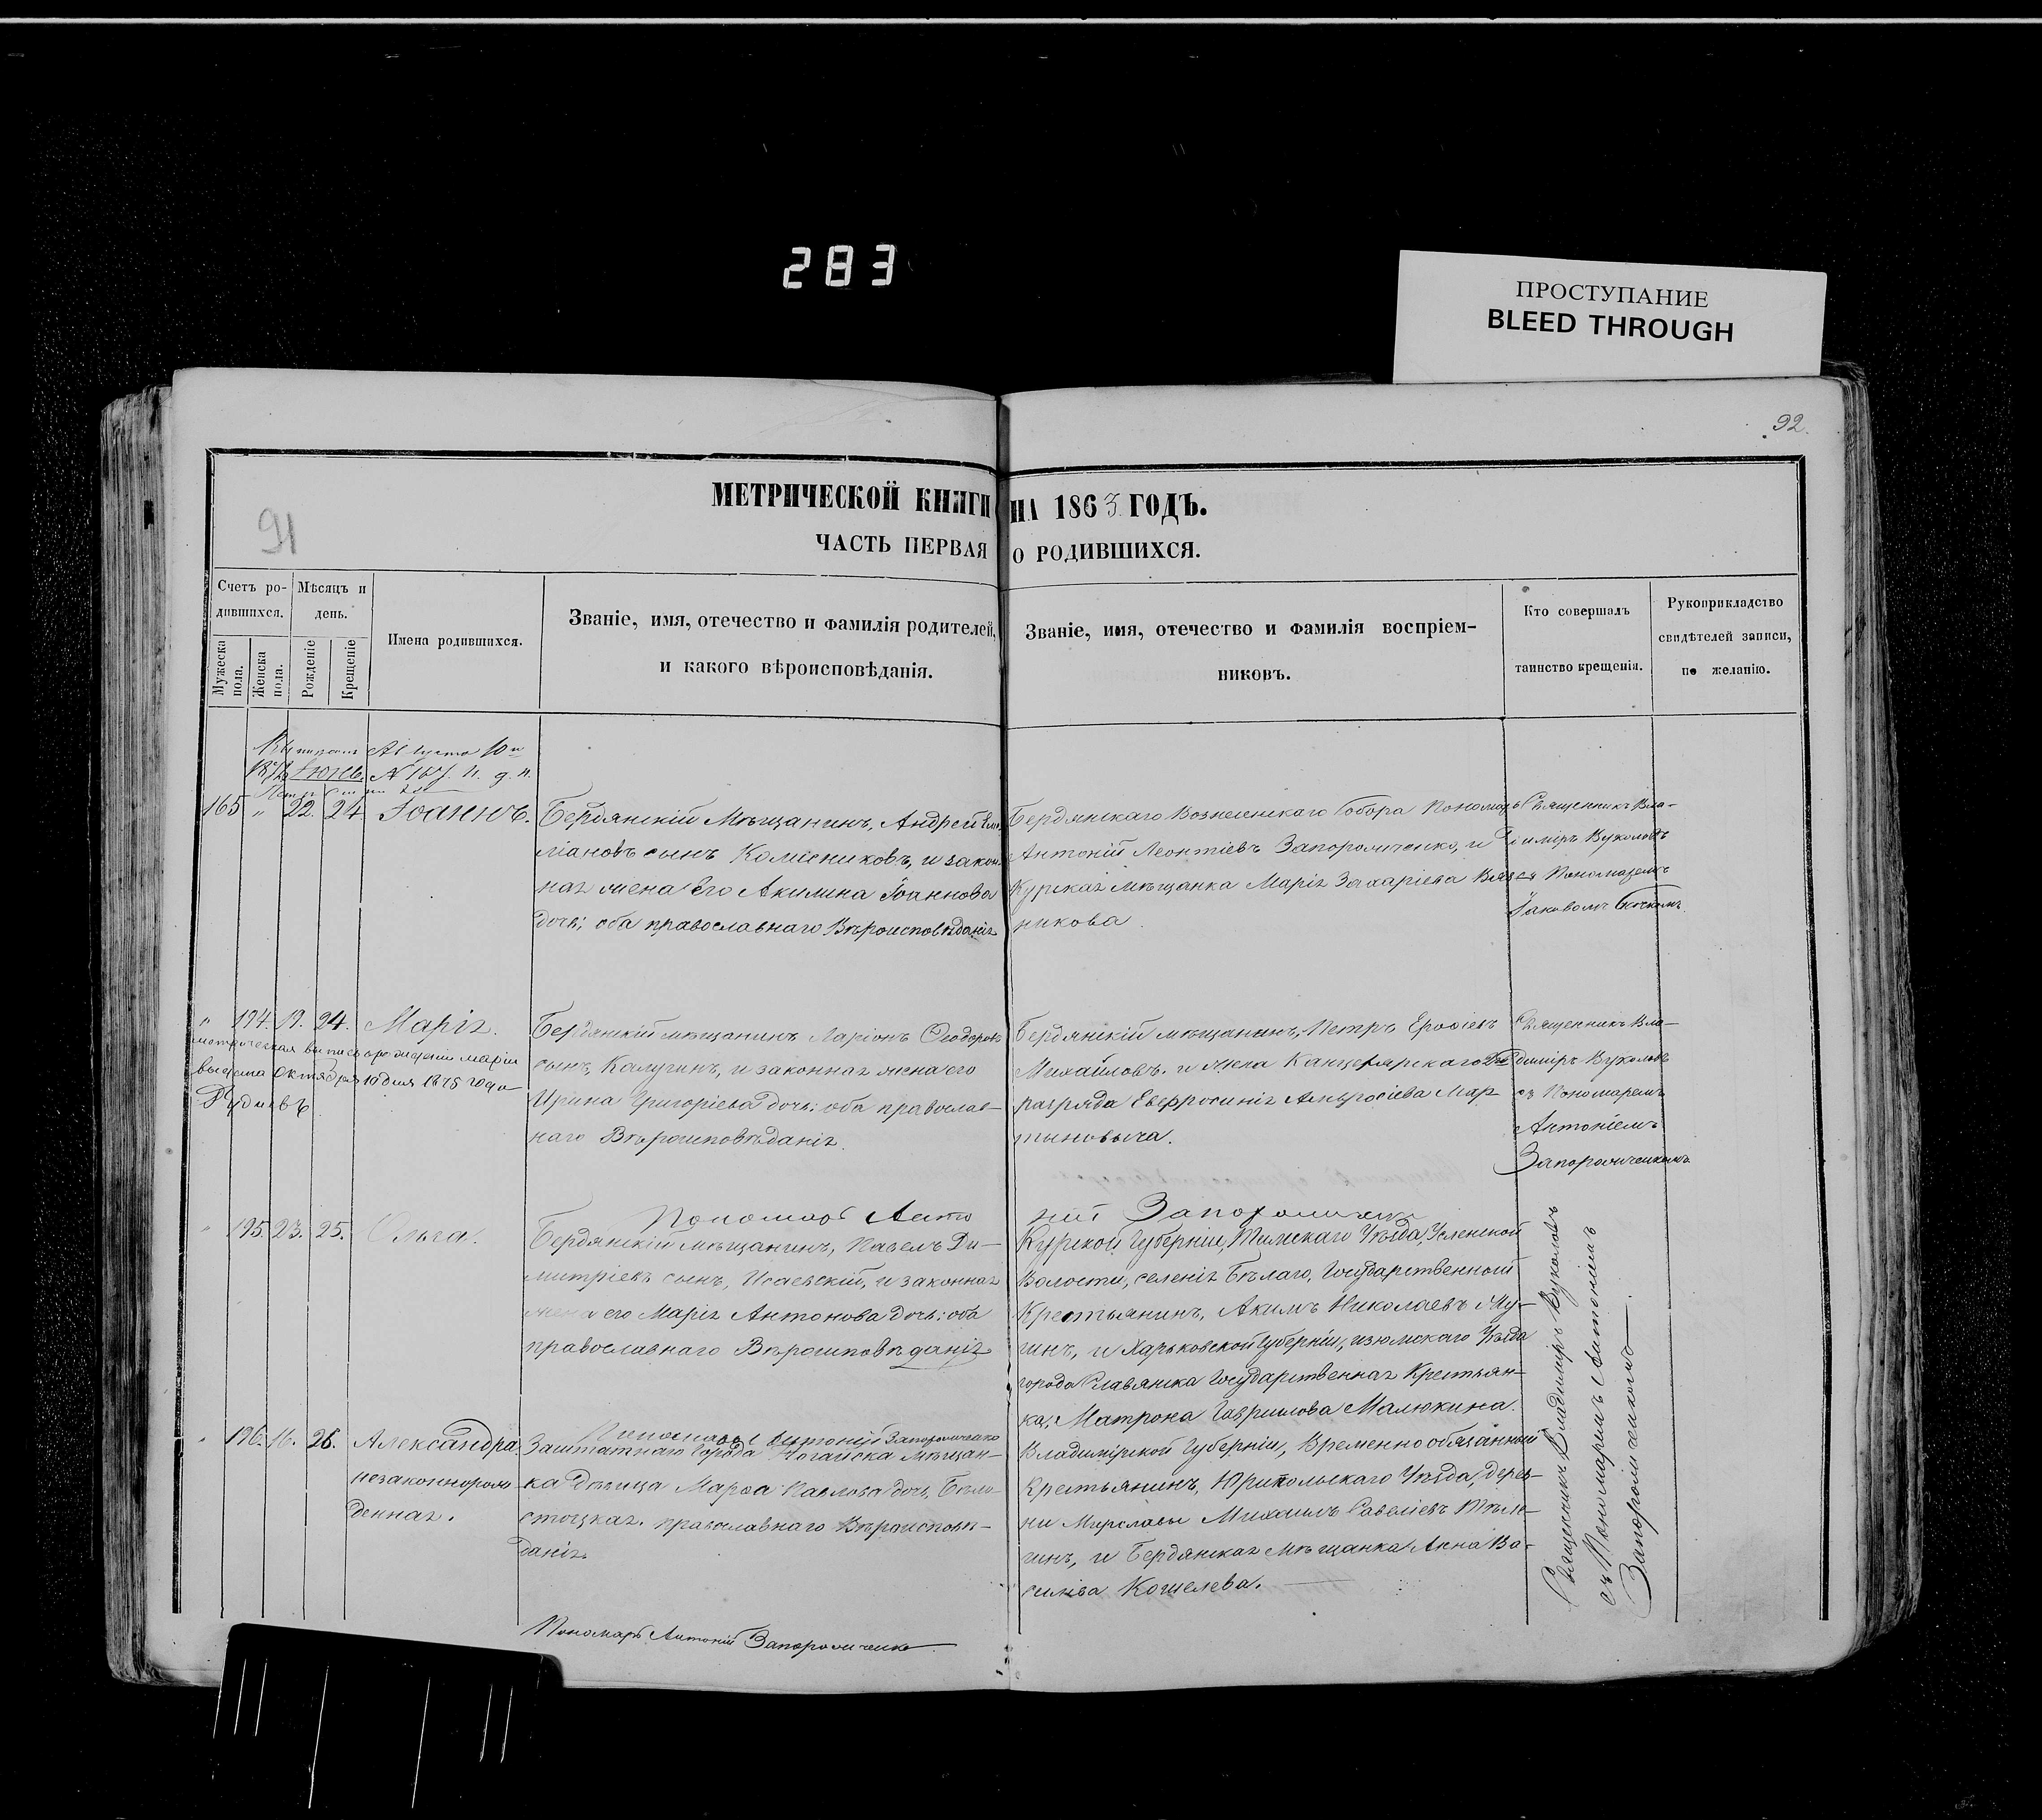 283
ПРОСТУПАНИЕ
BLEED THROUGH
92.
91
МЕТРИЧЕСКОЙ КНИГИ НА 1863 ГОДЪ.
ЧАСТЬ ПЕРВАЯ О РОДИВШИХСЯ.
Счетъ ро-
дившихся.
Мужеска пола.
Женска пола.
Мѣсяцъ и
день.
Рожденіе
Крещеніе
Имена родившихся.
Званіе, имя, отечество и фамилія родителей,
и какого вѣроисповѣданія.
Званіе, имя, отечество и фамилія воспріем-
никовъ.
Кто совершалъ
таинство крещенія.
Рукоприкладство
свидѣтелей записи,
по желанію.
Августа 10
165 " 22. 24 Іоаннъ.
Бердянскій Мѣщанинъ, Андрей Еми-
ліановъ сынъ Колисниковъ, и закон-
ная жена его Акилина Іоаннова
дочь; оба православнаго Вѣроисповѣданія
Бердянскаго Вознесенскаго Собора Пономарь
Антоній Леонтіевъ Запорожченко, и
Курская мѣщанка Марія Захаріева
никова
Священникъ Вла-
диміръ Вуколовъ
съ Пономаремъ
Іаковомъ
" 194. 19. 24. Марія.
метрическая выпись о рожденіи маріи
выдана октября 10 дня 1875 года
Бердянскій мѣщанинъ Ларіонъ Ѳеодоровъ
сынъ, Калугинъ, и законная жена его
Ирина Григоріева дочь; оба православ-
наго Вѣроисповѣданія.
Бердянскій мѣщанинъ, Петръ Ероѳіевъ
Михайловъ. и жена Канцелярскаго
разряда Евфросинія Амвросіева Мар
тыновыча.
Священникъ Вла-
диміръ Вуколовъ
съ Пономаремъ
Антоніемъ
Запорожченкомъ
Пономарь Антоній Запорожченко
" 195. 23. 25. Ольга.
Бердянскій мѣщанинъ, Павелъ Ди-
митріевъ сынъ, Исаевскій, и законная
жена его Марія Антонова дочь; оба
православнаго Вѣроисповѣданія
Курской Губерніи, Тимскаго Уѣзда, Успенской
Волости, селенія Бѣлаго, Государственный
Крестьянинъ, Акимъ Николаевъ
гинъ, и Харьковской Губерніи, изюмскаго Уѣзда
города Славянска Государственная Крестьян-
ка, Матрона Гаврилова Малюкина.
Пономарь Антоній Запорожченко
" 196. 16. 26. Александра
незаконнорож-
денная.
Заштатнаго Города Ногайска Мѣщан-
ка Дѣвица Марѳа Павлова дочь, Бѣло-
стоцкая. православнаго Вѣроисповѣ-
данія.
Владимірской Губерніи, Временнообязанный
Крестьянинъ, Юрипольскаго Уѣзда, дерев-
ни Мирславы Михаилъ Савеліевъ
гинъ, и Бердянская Мѣщанка Анна Ва-
сильева Кошелева.
Священникъ Владиміръ Вуколовъ
съ Пономаремъ Антоніемъ
Запорожченкомъ
Пономарь Антоній Запорожченко